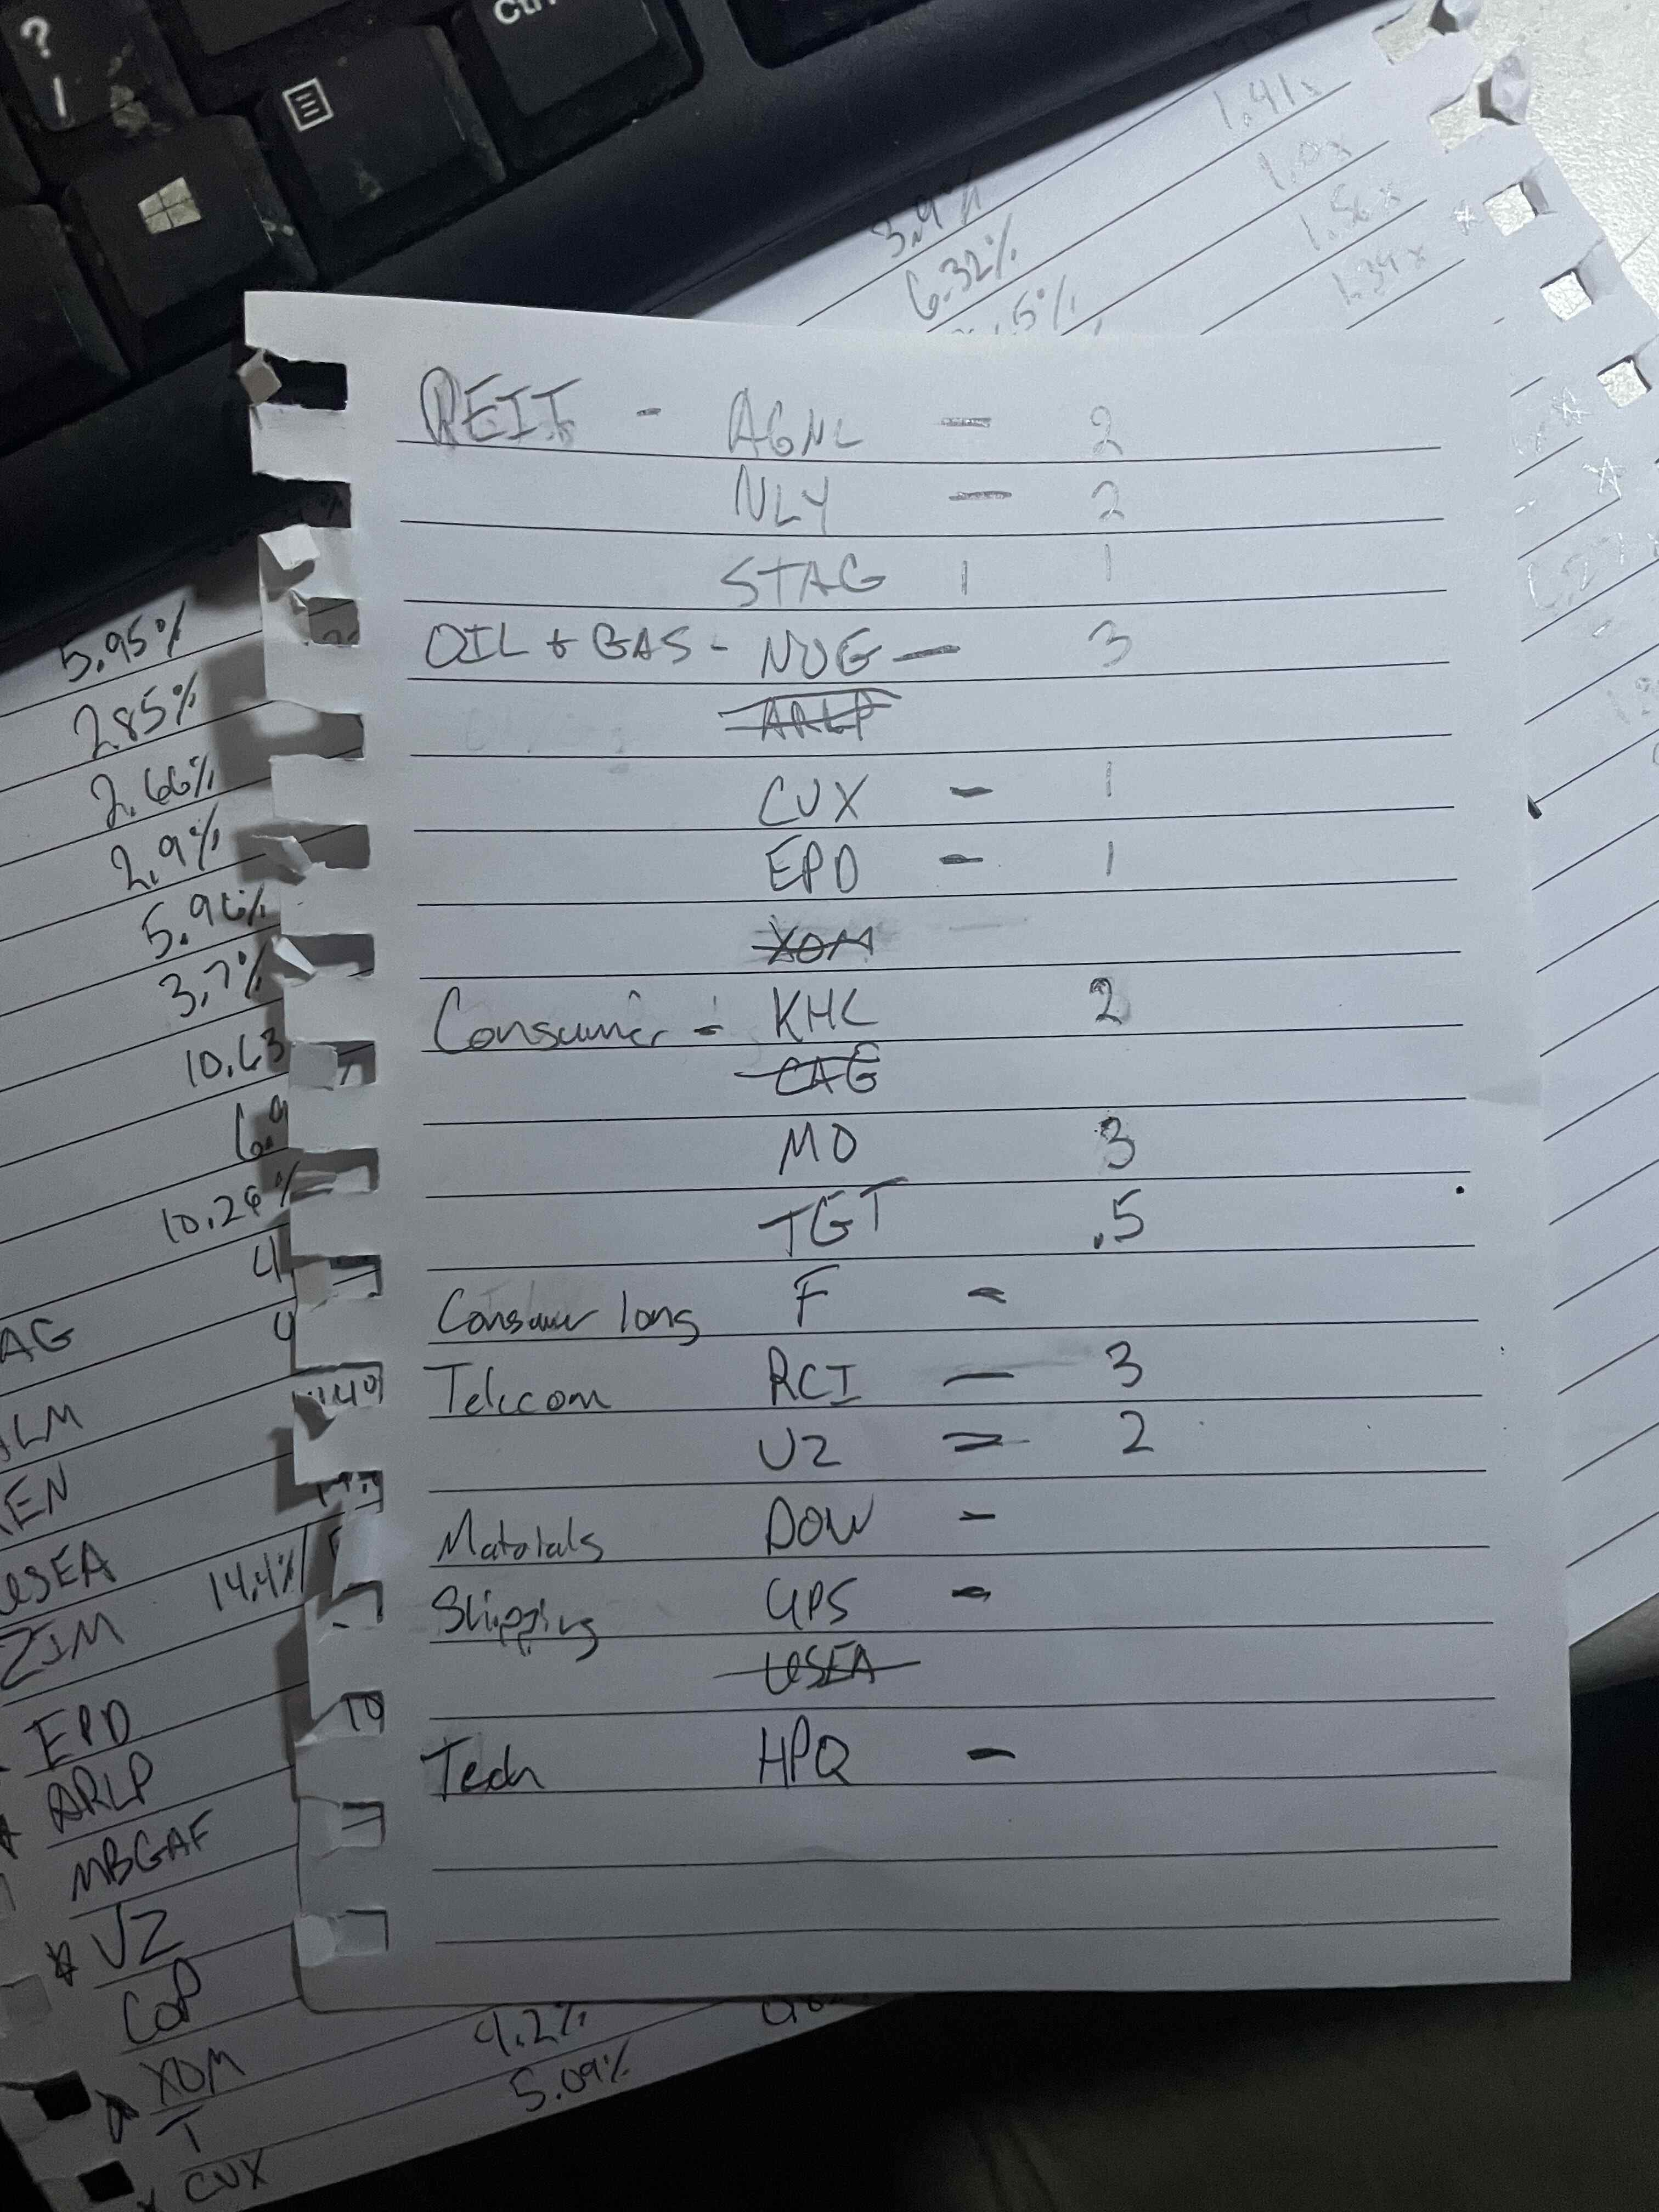 ?
/
Ctrl
1.41x
3.9%
1.0x
6.32%
1.56x
.5%
1.39x
REIT - AGNC — 2
NLY — 2
STAG 1 1
OIL + GAS - NOG — 3
ARLP
CVX - 1
EPD - 1
XOM
Consumer - KHC 2
CAG
MO 3
TGT .5
Consumer long F -
Telecom RCI — 3
VZ = 2
Matrials DOW -
Shipping UPS -
USEA
Tech HPQ -
5.95%
2.85%
2.66%
2.9%
5.96%
3.7%
10.63
6.9
10.26%
4
AG 4
ALM
EN
USEA 14.4%
ZIM
EPD
ARLP
MBGAF
VZ
COP
XOM 4.2%
T 5.09%
CVX